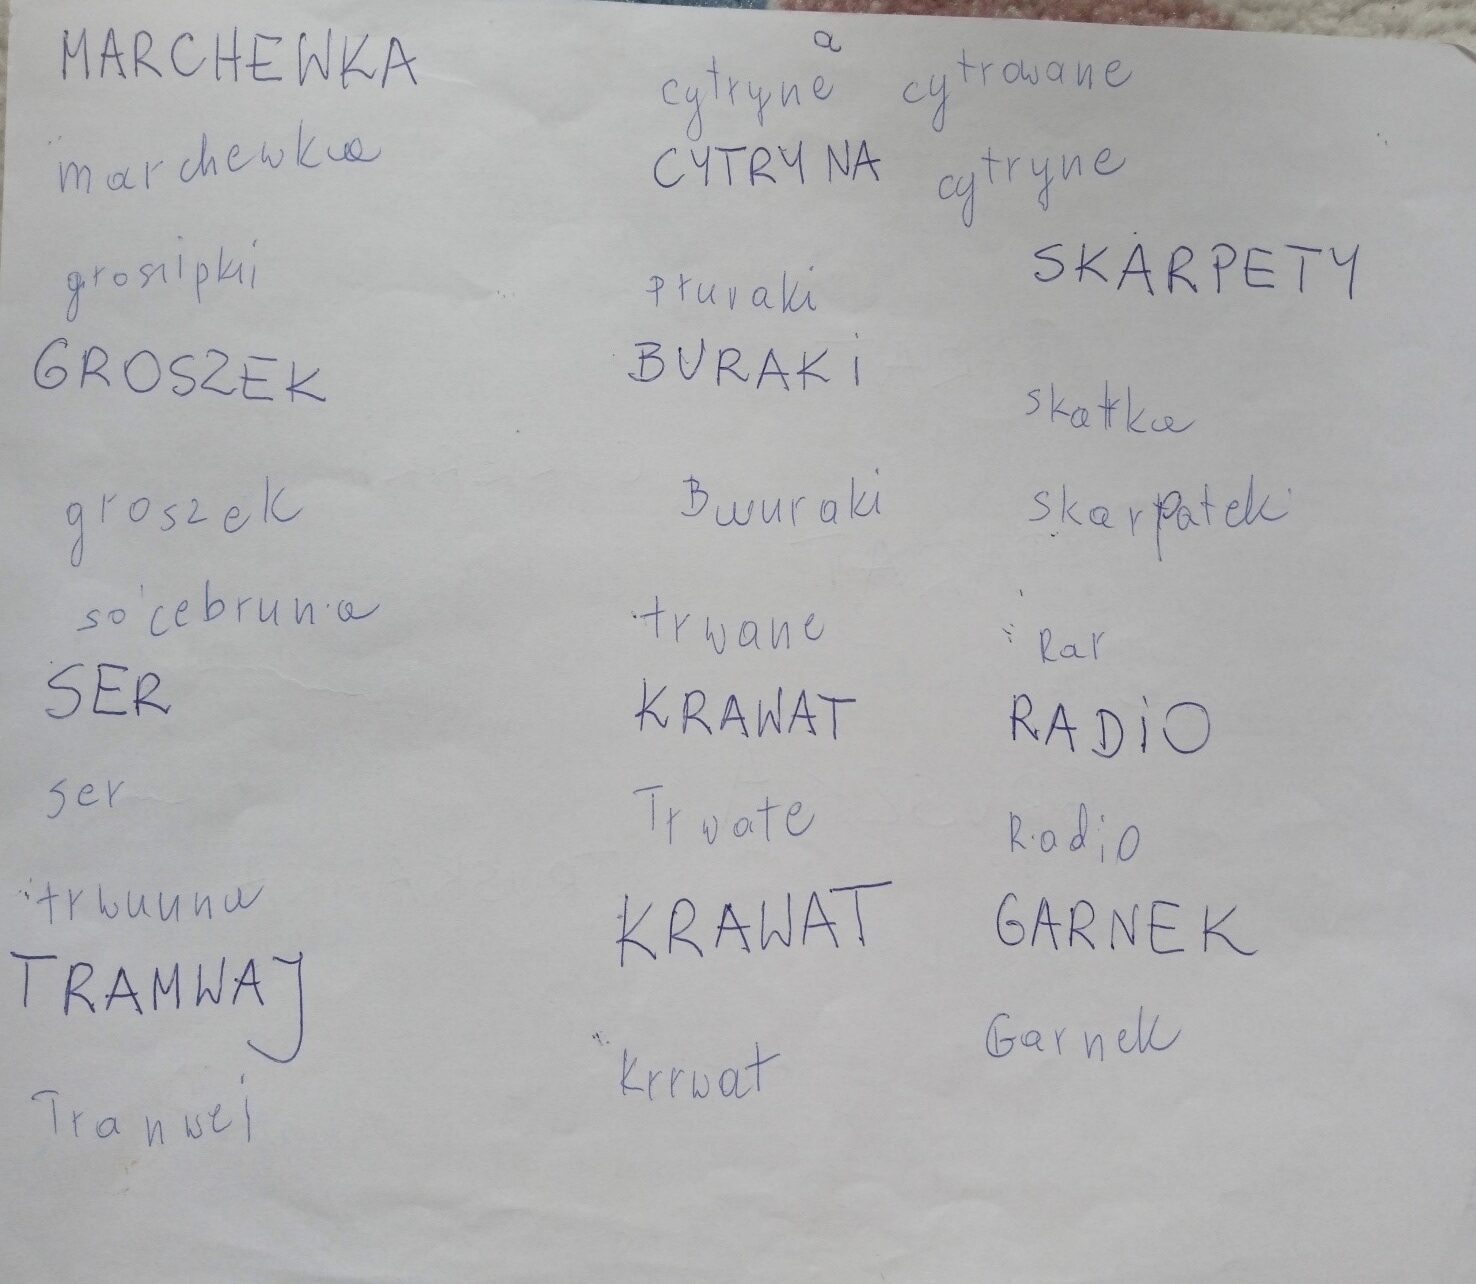 MARCHEWKA
marchewka
grosipki
GROSZEK
groszek
so'cebruna
SER
ser
trwuuna
TRAMWAJ
Tranwej
a
cytryne cytrowane
CYTRYNA cytryne
pturaki
BURAKi
Bwuraki
trwane
KRAWAT
Trwate
KRAWAT
Krrwat
SKARPETY
skatka
skarpatek
Rar
RADiO
Radio
GARNEK
Garnek